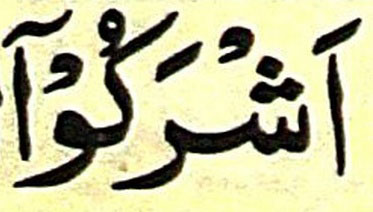 اَشْرَكُوْۤا